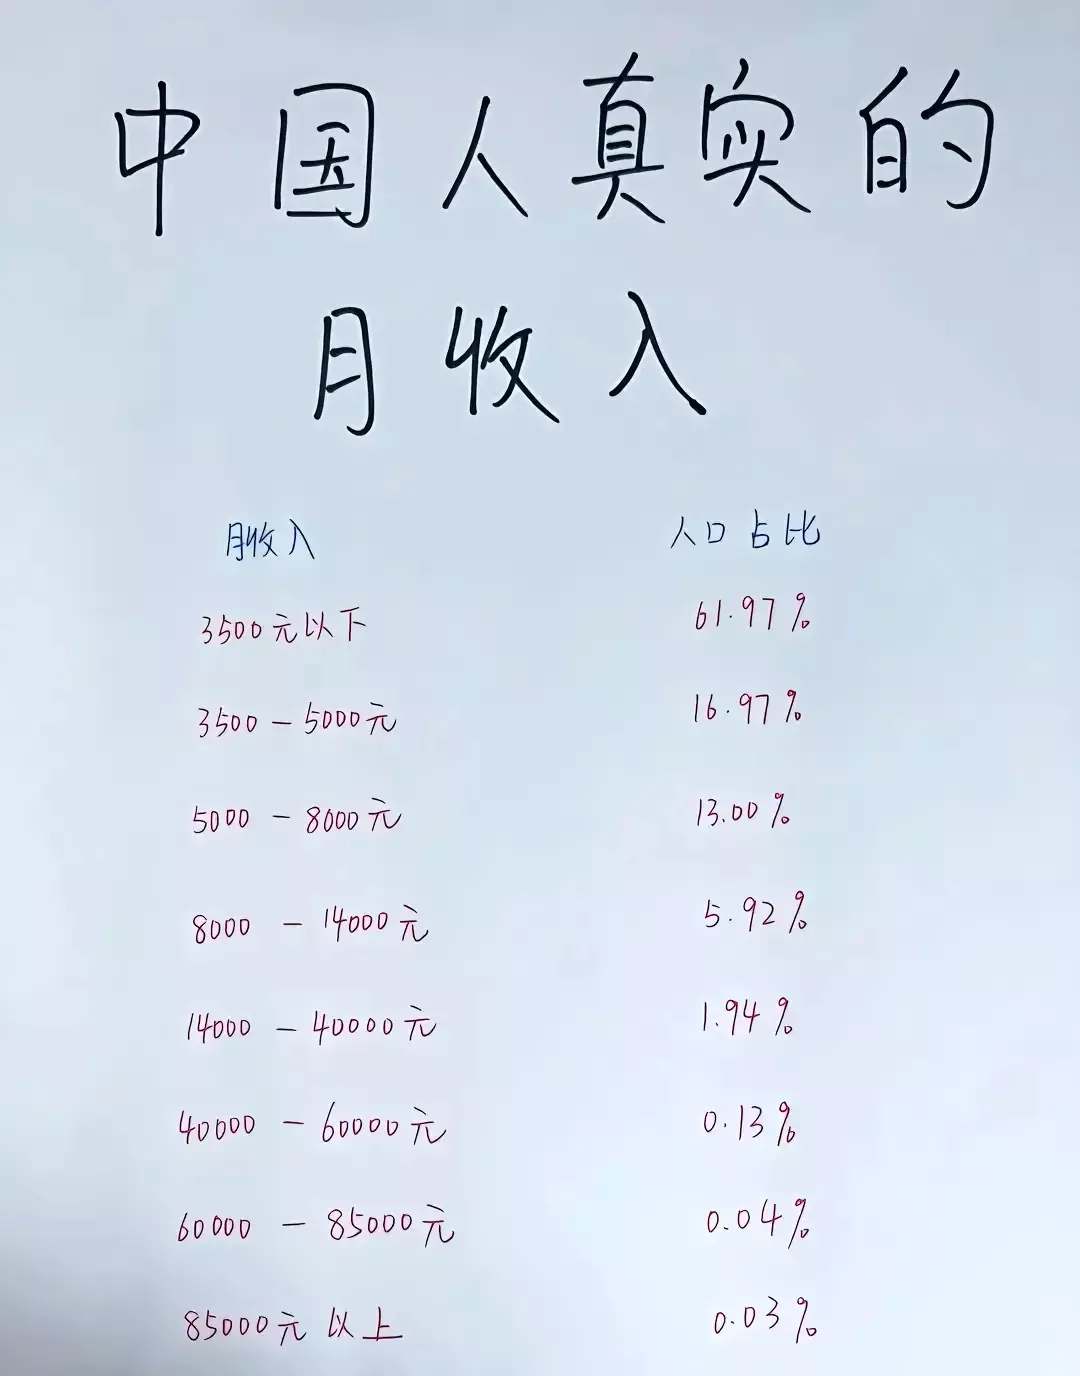 中国人真实的
月收入
月收入 人口占比
3500元以下 61.97%
3500-5000元 16.97%
5000-8000元 13.00%
8000-14000元 5.92%
14000-40000元 1.94%
40000-60000元 0.13%
60000-85000元 0.04%
85000元以上 0.03%